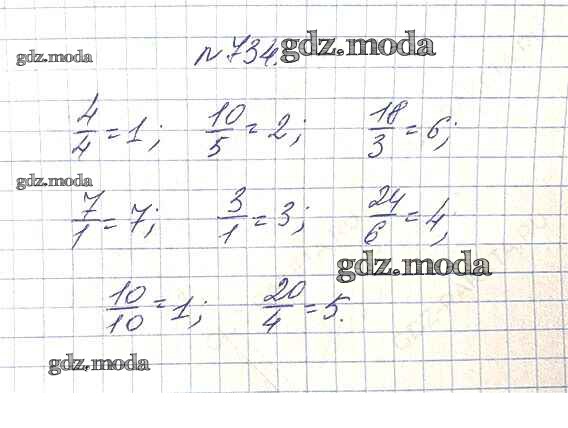 gdz.moda № 734. gdz.moda
4/4 = 1; 10/5 = 2; 18/3 = 6;
gdz.moda
7/1 = 7; 3/1 = 3; 24/6 = 4;
gdz.moda
10/10 = 1; 20/4 = 5.
gdz.moda